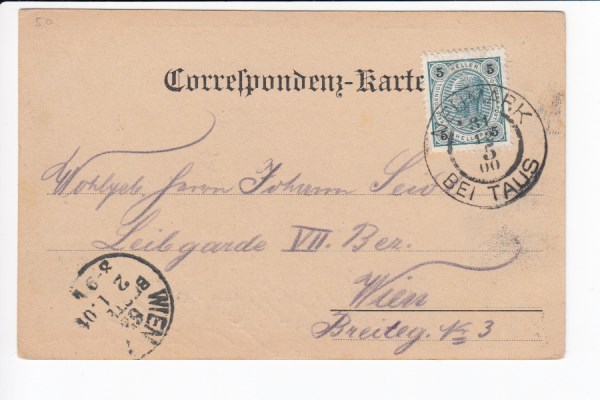 50
Correspondenz-Karte
5 HELLER 5
5 HELLER 5
NEUMARK
31
5
00
BEI TAUS
Wohlgeb. Herrn Johann
Leibgarde VII. Bez.
Wien
Breiteg. No 3
WIEN
8-9
2 1.01